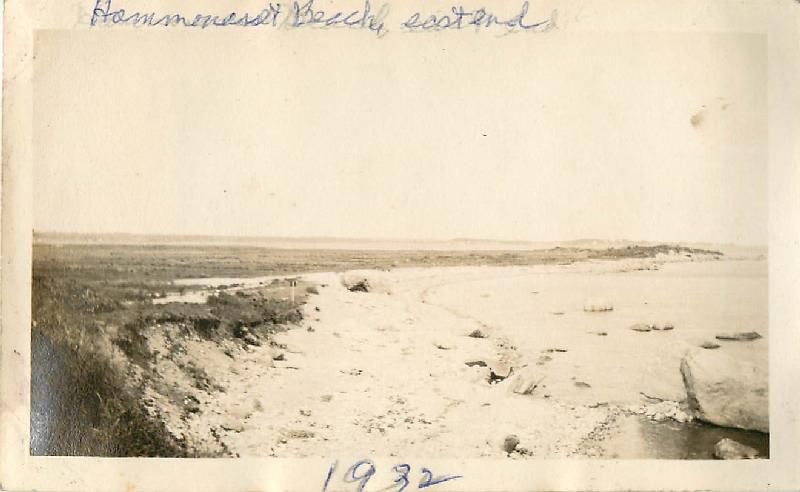 Hammonasset Beach, east end
1932